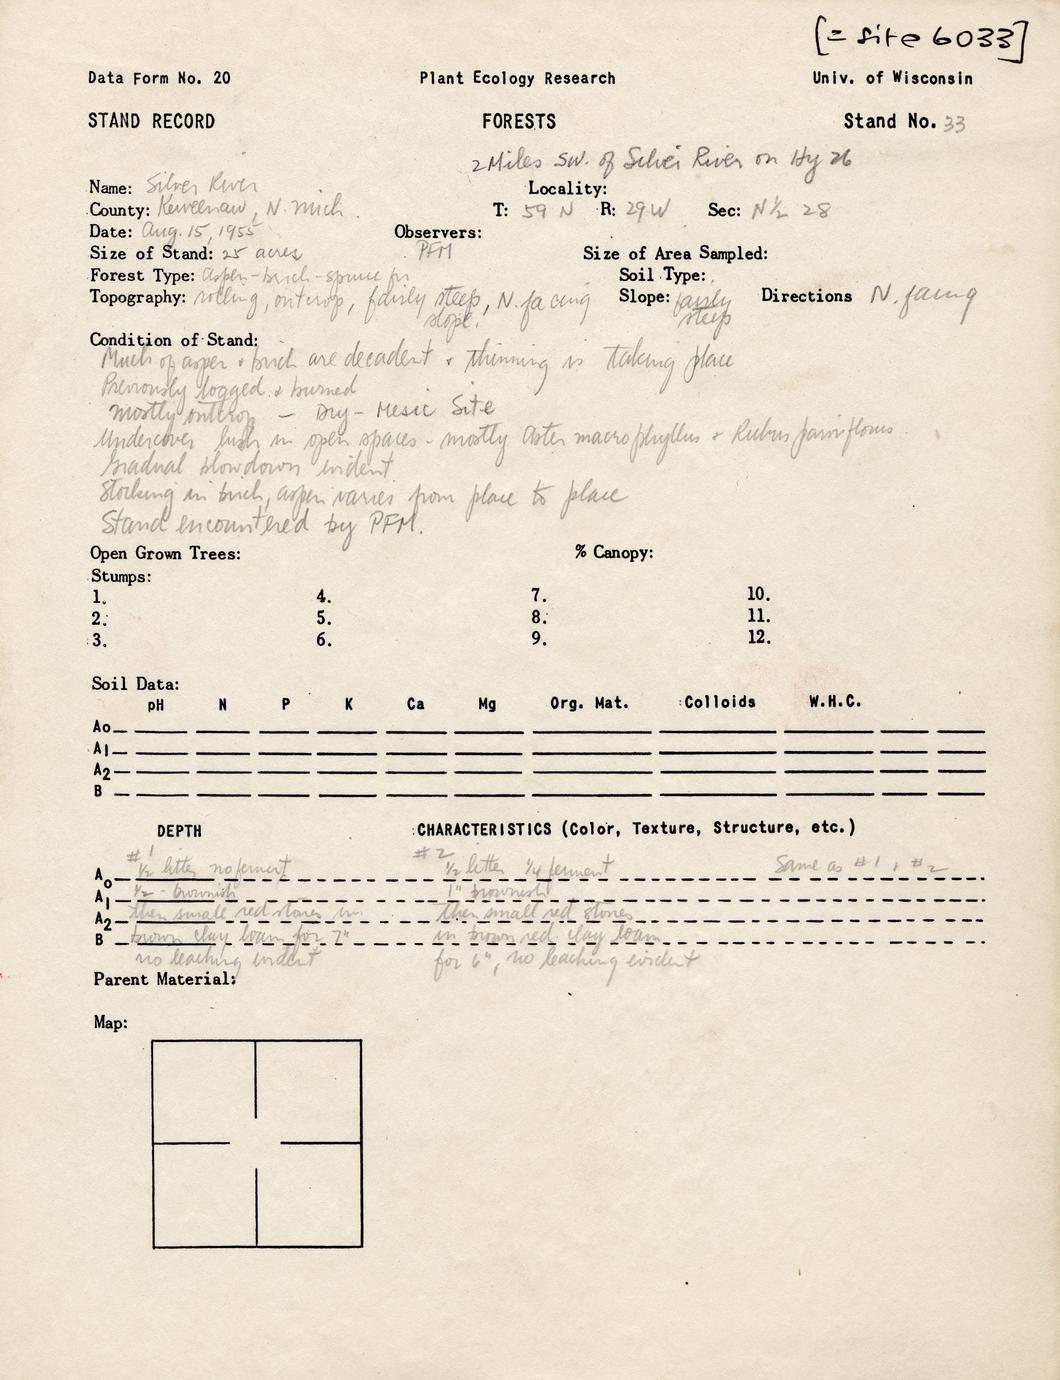 [= site 6033]
Data Form No. 20 Plant Ecology Research Univ. of Wisconsin
STAND RECORD FORESTS Stand No. 33
2 Miles SW. of Silver River on Hy 26
Name: Silver River Locality:
County: Keweenaw, N. Mich. T: 59 N R: 29 W Sec: N½ 28
Date: Aug. 15, 1955 Observers:
Size of Stand: 25 acres PFM Size of Area Sampled:
Forest Type: Aspen-birch-spruce fir Soil Type:
Topography: rolling, outcrop, fairly steep, N. facing Slope: fairly Directions N. facing
slope. steep
Condition of Stand:
Much of aspen & birch are decadent & thinning is taking place
Previously logged & burned
Mostly outcrop — Dry-Mesic Site
Undercover lush in open spaces - mostly Aster macrophyllus & Rubus parviflorus.
Gradual blowdown evident
Stocking in birch, aspen varies from place to place
Stand encountered by PFM.
Open Grown Trees: % Canopy:
Stumps:
1. 4. 7. 10.
2. 5. 8. 11.
3. 6. 9. 12.
Soil Data:
pH N P K Ca Mg Org. Mat. Colloids W.H.C.
Ao
A1
A2
B
DEPTH CHARACTERISTICS (Color, Texture, Structure, etc.)
#1 #2
Ao ½ litter no ferment ½ litter ¼ ferment Same as #1 & #2
A1 ½ - brownish 1" brownish
A2 then small red stones in then small red stones
B brown clay loam for 7" in brown red clay loam
no leaching evident for 6", no leaching evident
Parent Material:
Map: